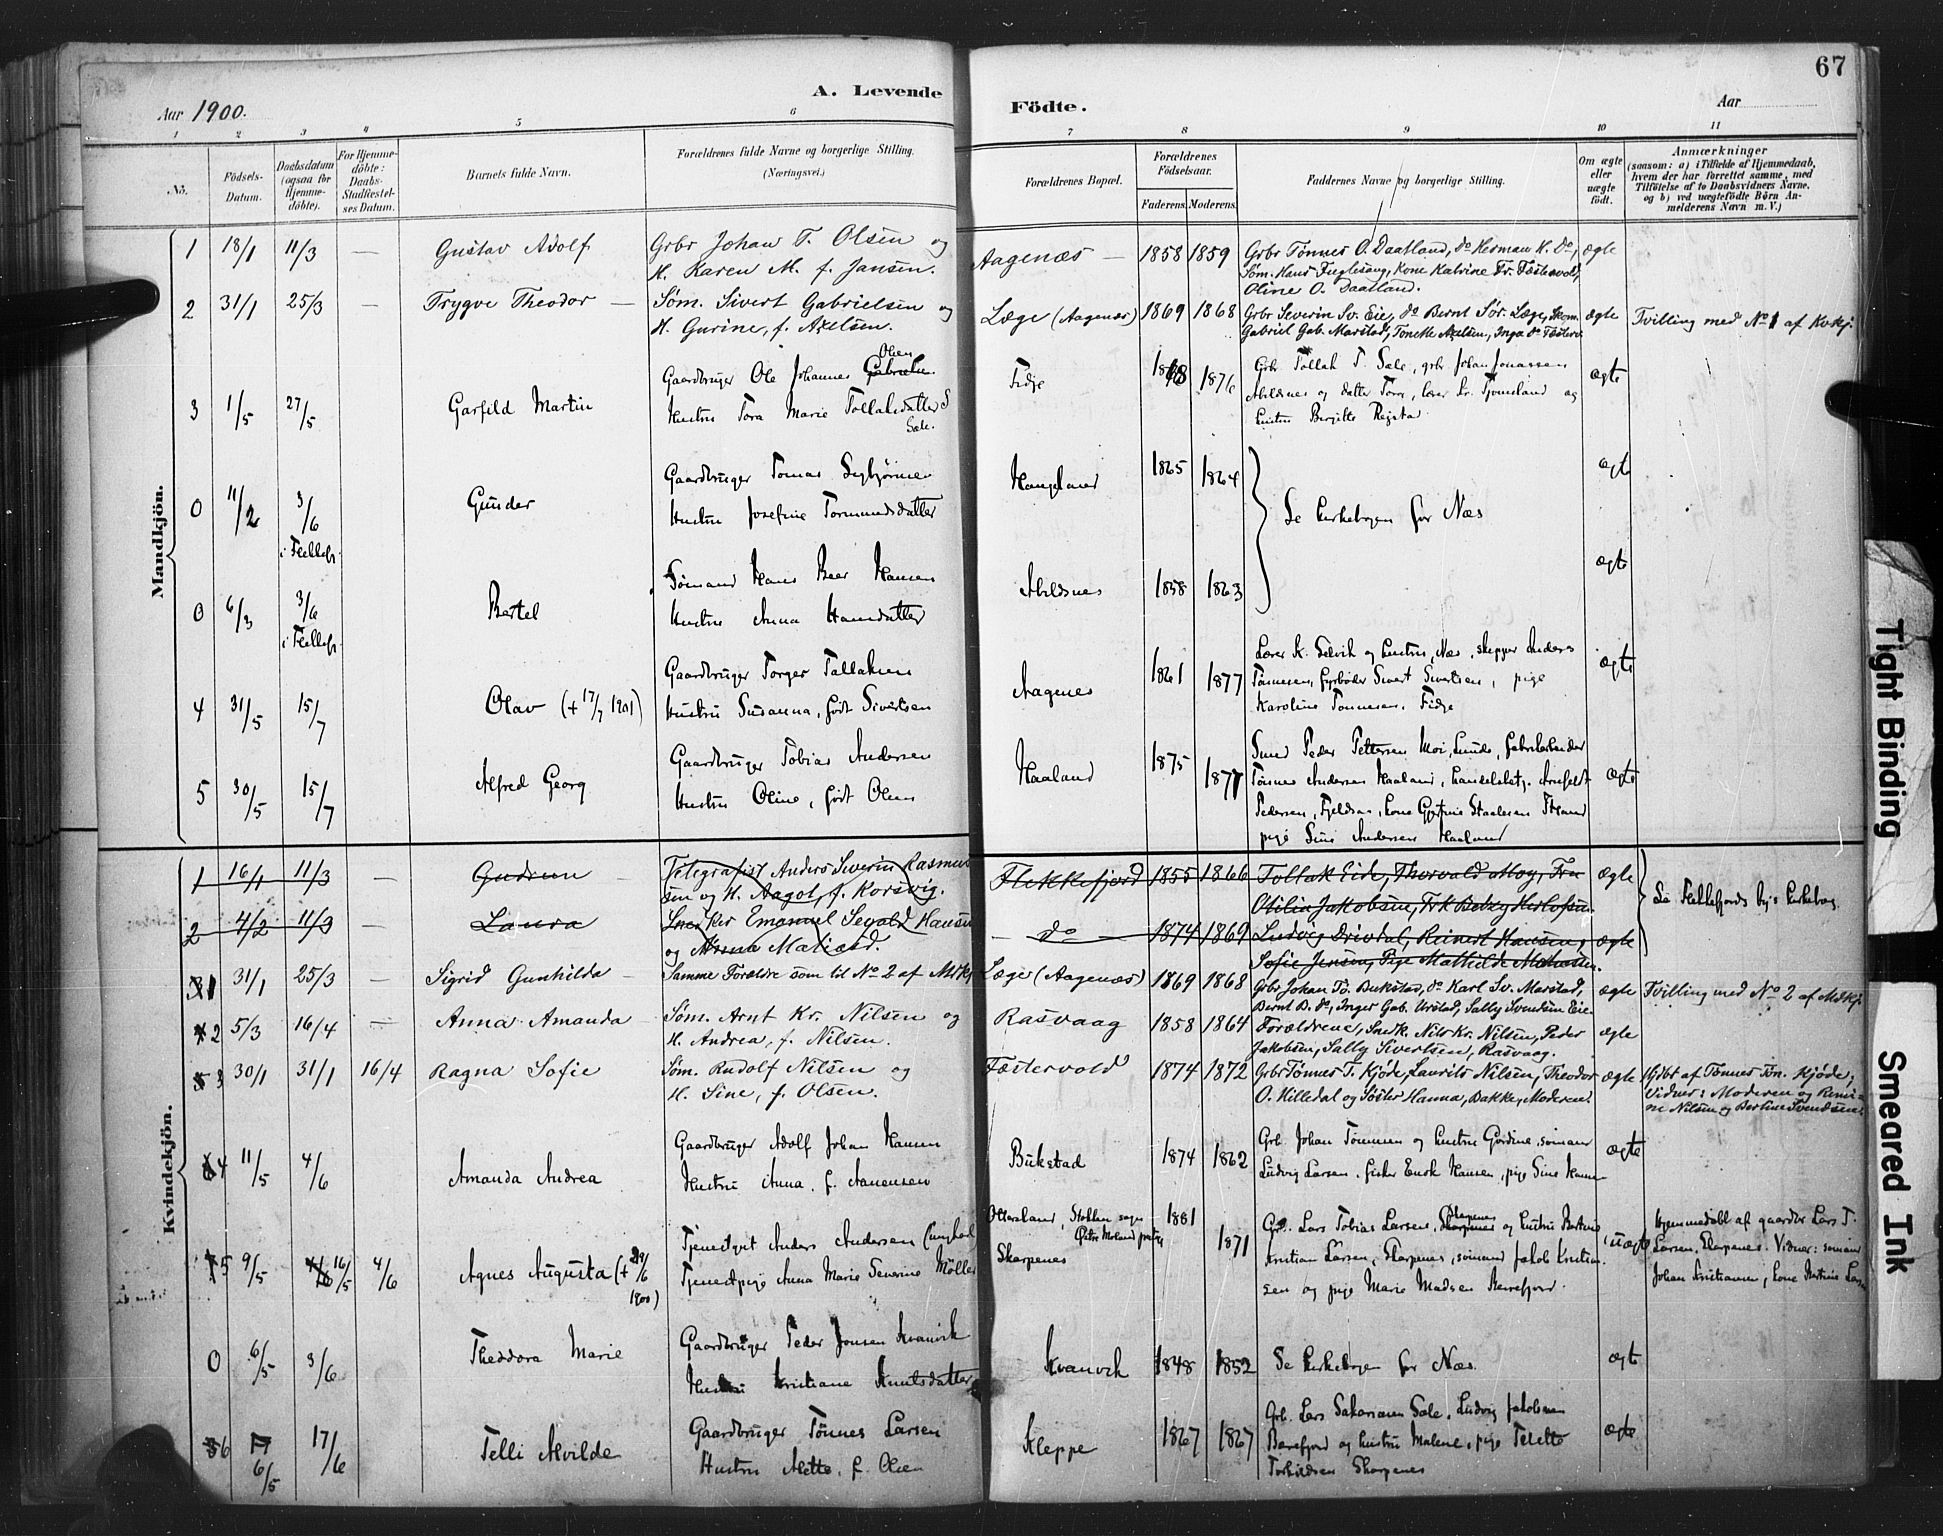 67
A. Levende
Födte.
Aar 1900.
Aar
1 2 3 4 5 6 7 8 9 10 11
No.
Födsels-
Datum.
Daabsdatum
(ogsaa for
Hjemme-
döbte).
For Hjemme-
döbte:
Daabs-
Stadfæstel-
ses Datum.
Barnets fulde Navn.
Forældrenes fulde Navne og borgerlige Stilling.
(Næringsvei.)
Forældrenes Bopæl.
Forældrenes
Födselsaar.
Faderens. Moderens.
Faddernes Navne og borgerlige Stilling.
Om ægte
eller
uægte
födt.
Anmærkninger
(saasom: a) i Tilfælde af Hjemmedaab,
hvem der har forrettet samme, med
Tilföielse af to Daabsvidners Navne,
og b) ved uægtefödte Börn An-
melderens Navn m. V.)
Mandkjön.
1 18/1 11/3 — Gustav Adolf
Grbr Johan T. Olsen og
H. Karen M. f. Jansen.
Aagenæs — 1858 1859
Grbr Tønnes O. Daatland, do Herman K. do,
Søm. Hans Fuglesang, Kone Katrine Fr. Fæstervold,
Oline O. Daatland.
ægte
2 31/1 25/3 — Trygve Theodor —
Søm. Sivert Gabrielsen og
H. Gurine, f. Axelsen.
Læge (Aagenæs) 1869 1868
Grbr Severin Sv. Eie, do Bernt Sør. Læge, Skom.
Gabriel Gab. Marstad, Tonette Axelsen, Inga do Fæsterv.
ægte
Tvilling med No 1 af Kvkj.
3 1/5 27/5 Garfild Martin
Gaardbruger Ole Johannes Gabrielsen Olsen
Hustru Tora Marie Tollaksdatter S
Sale.
Fidje 1868 1876
Grb. Tollak T. Sale, grbr Johan Jonassen
Abildsnes og datter Tora, lærer Fr. Tjomsland og
hustru Birgitte Regeta
ægte
0 11/2 3/6
i Flekkefj.
Gunder
Gaardbruger Tomas Sigbjørnsen
Hustru Josefine Tormundsdatter
Haugeland 1865 1864
Se kirkebogen for Næs
ægte
0 6/3 3/6
i Flekkefj.
Bertel
Sømand Hans Beer Hansen
Hustru Anna Hansdatter
Abildsnes 1858 1863
ægte
4 31/5 15/7 Olav (+ 17/7 1901)
Gaardbruger Torger Tallaksen
Hustru Susanna, født Sivertsen
Aagenes 1861 1877
Lærer K. Selvik og hustru, Næs, skipper Anders
Tønnesen, fyrbøder Sivert Sivertsen, pige
Karoline Tønnesen, Fidje
ægte
5 30/5 15/7 Alfred Georg
Gaardbruger Tobias Andersen
Hustru Oline, født Olsen
Haaland 1875 1877
Smed Peder Pettersen Moi, Lunde, fabrikarbeider
Tønnes Andersen Haaland, handelsbetj. Arnfeldt
Pedersen, Fjeldsaa, kone Gjertine Staalesen
pige Sine Andersen Haaland
ægte
Kvindekjön.
1 16/1 11/3 — Gudrun —
Telegrafist Anders Severin Rasmus
sen og H. Aagot, f. Korsvig.
Flekkefjord 1855 1866
Tollak Eide, Thorvald Moy, Fru
Otilia Jakobsen, Frk Betzy Herlofsen.
ægte
Se Flekkefjords by's kirkebog.
2 4/2 11/3 — Laura
Snedker Emanuel Sevald Hansen
og Anna Maliand.
— do — 1874 1869
Ludvig Drivdal, Reinert Hansen og
Sofie Jensen, Pige Mathilde Mathiesen.
ægte
1 31/1 25/3 — Sigrid Gunhilda —
Samme Forældre som til No 2 af Mdkj.
Læge (Aagenæs) 1869 1868
Grbr Johan Tø. Bukstad, do Karl Sv. Marstad,
Bernt B. do, Inger Gab. Urstad, Sally Svendsen Eie.
ægte
Tvilling med No 2 af Mdkj.
2 5/3 16/4 — Anna Amanda
Søm. Arnt Kr. Nilsen og
H. Andrea, f. Nilsen.
Rasvaag 1858 1864
Forældrene, Snedk. Nils Kr. Nilsen, Peder
Jakobsen, Sally Sivertsen, Rasvaag.
ægte
3 30/1 31/1 16/4 Ragna Sofie
Søm. Rudolf Nilsen og
H. Sine, f. Olsen.
Fæstervold 1874 1872
Grbr Tønnes T. Kjøde, Laurits Nilsen, Theodor
O. Hilledal og Søster Hanna, Bakke, Moderen.
ægte
Hjdbt af Tønnes Tøn. Kjøde,
Vidner: Moderen og
Nilsen og Bertine Svendsen.
4 11/5 4/6 Amanda Andrea
Gaardbruger Adolf Johan Hansen
Hustru Anna f. Aanensen
Bukstad 1874 1862
Grb. Johan Tønnesen og hustru Gordine, sømann
Ludvig Larsen, fisker Enok Hansen, pige Sine Hansen
ægte
5 9/5 16/5 4/6 Agnes Augusta (+ 29/6
1900)
Tjenestgut Anders Andersen (ungkarl)
Tjenestpige Anna Marie Severine Møller
Ottersland, Stokken sogn
Østre Moland prstgj
Skarpenes
1881 1871
Grb. Lars Tobias Larsen, Skarpenes og hustru Bertine
Kristian Larsen, Skarpenes, sømand Jakob Kristian-
sen og pige Marie Madsen
uægte
Hjemmedøbt af gaardbr Lars T.
Larsen, Skarpenes. Vidner: sømann
Johan Kristiansen, kone
0 6/5 3/6 Theodora Marie
Gaardbruger Peder Jonsen Kvanvik
Hustru Kristiane Knutsdatter
Kvanvik 1848 1852
Se kirkebogen for Næs
ægte
6 6/5 17/6 Telli Alvilde
Gaardbruger Tønnes Larsen
Hustru Alette, f. Olsen
Kleppe 1867 1867
Grb. Lars Sakariasen Sale, Ludvig Jakobsen
og hustru Malene, pige Telette
Torkildsen Skarpenes
ægte
Tight Binding
Smeared Ink